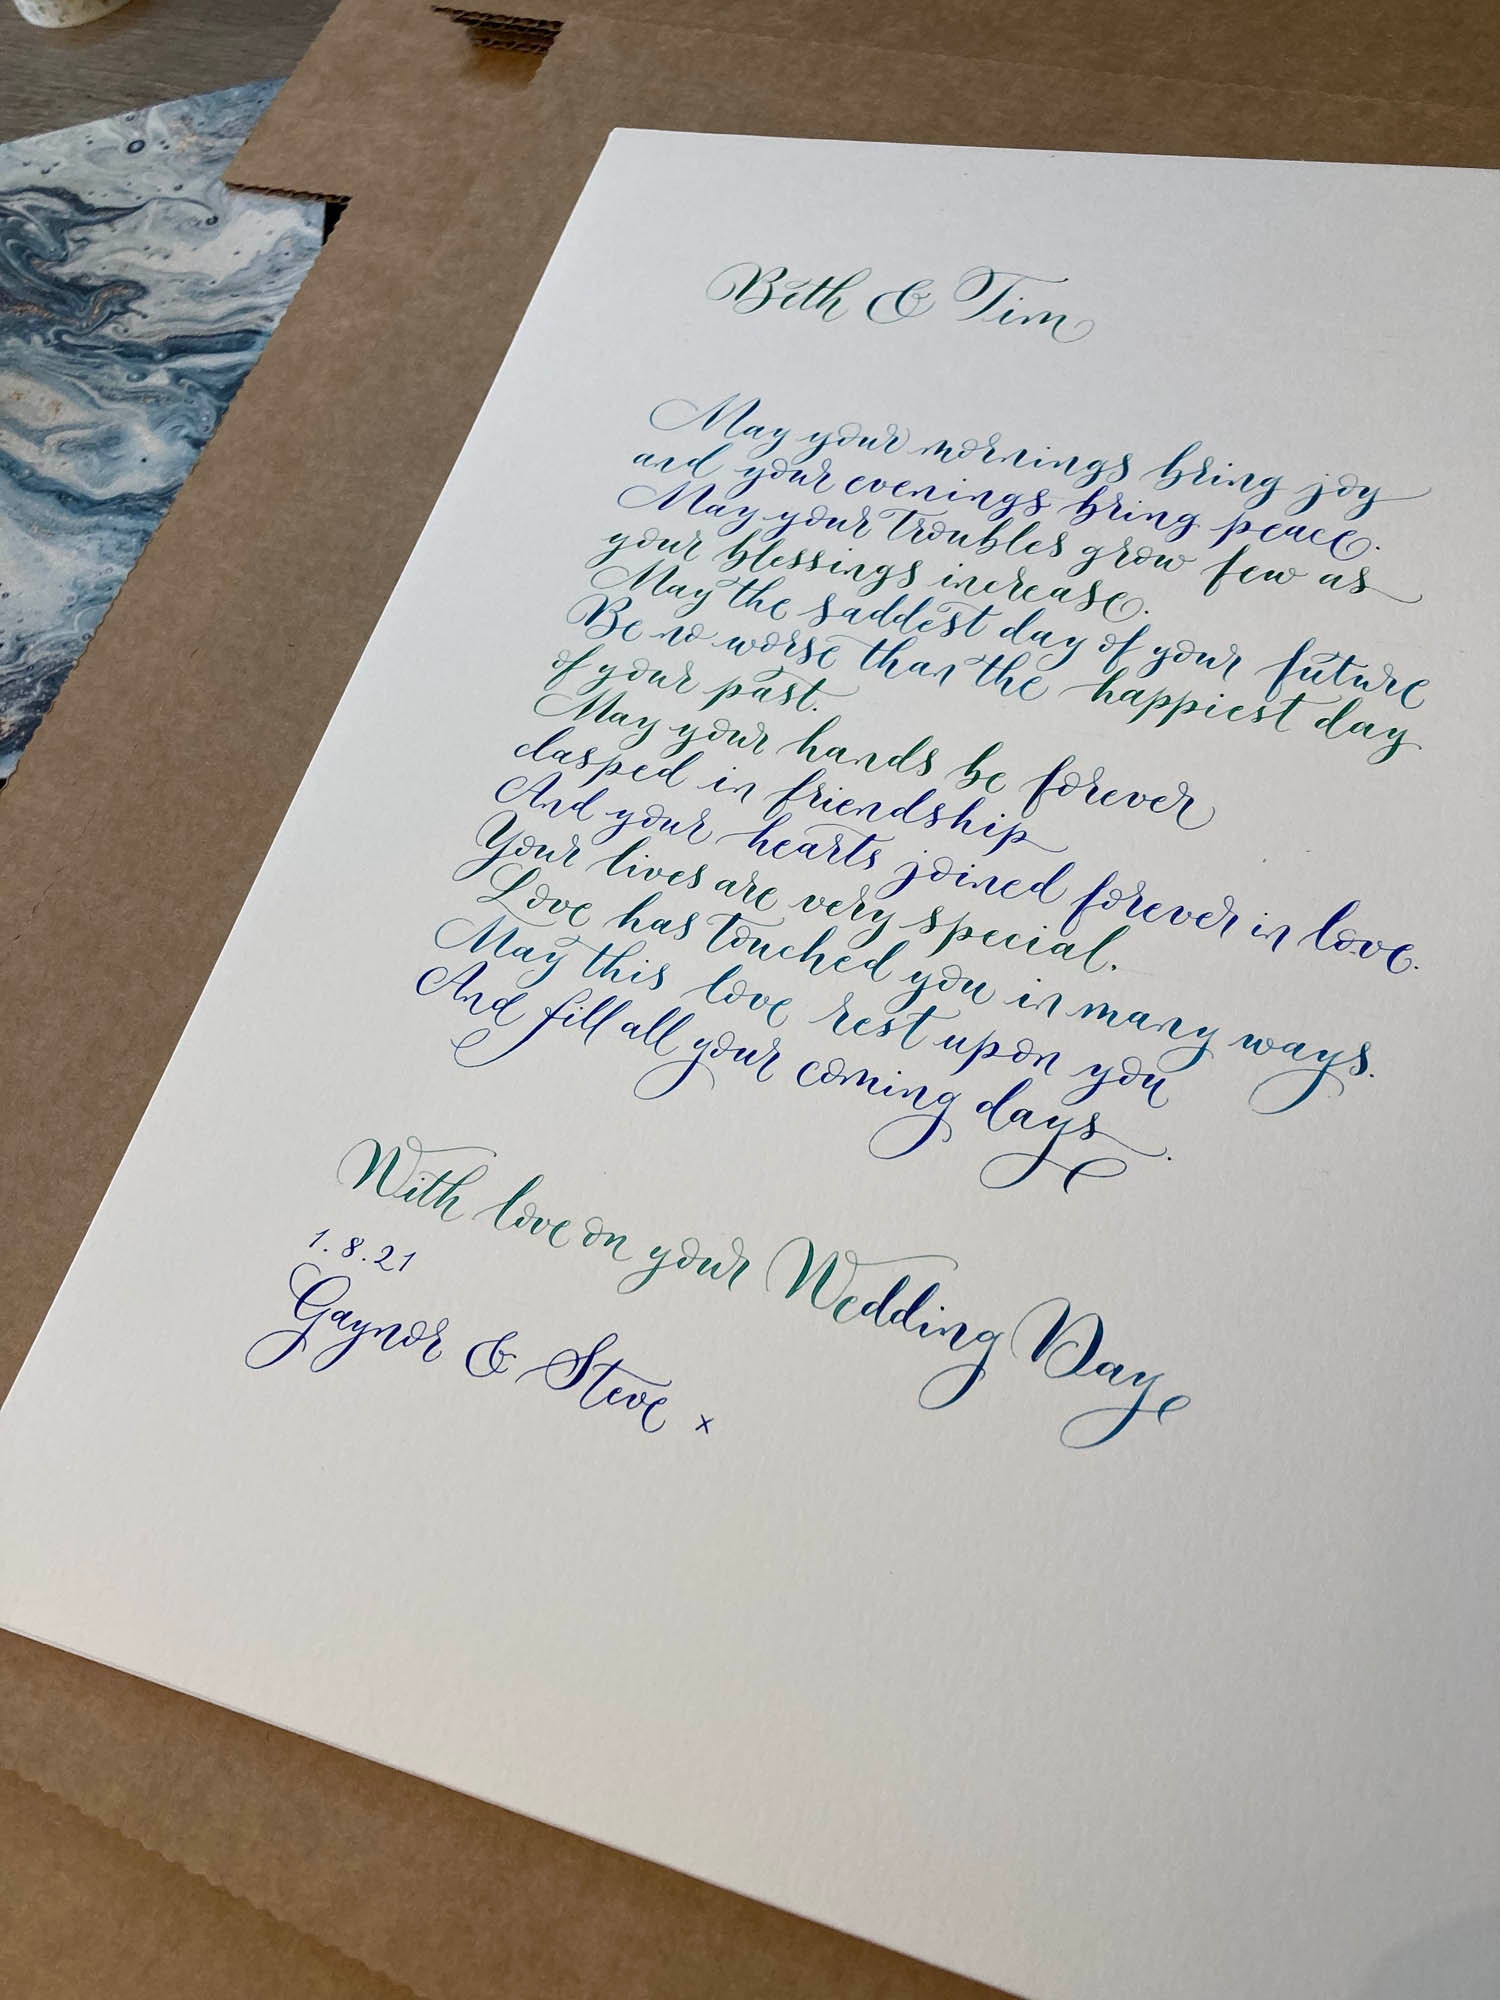 Beth & Tim
May your mornings bring joy
and your evenings bring peace.
May your troubles grow few as
your blessings increase.
May the saddest day of your future
Be no worse than the happiest day
of your past.
May your hands be forever
clasped in friendship
And your hearts joined forever in love.
Your lives are very special.
Love has touched you in many ways.
May this love rest upon you
And fill all your coming days.
With love on your Wedding Day
1.8.21
Gaynor & Steve x